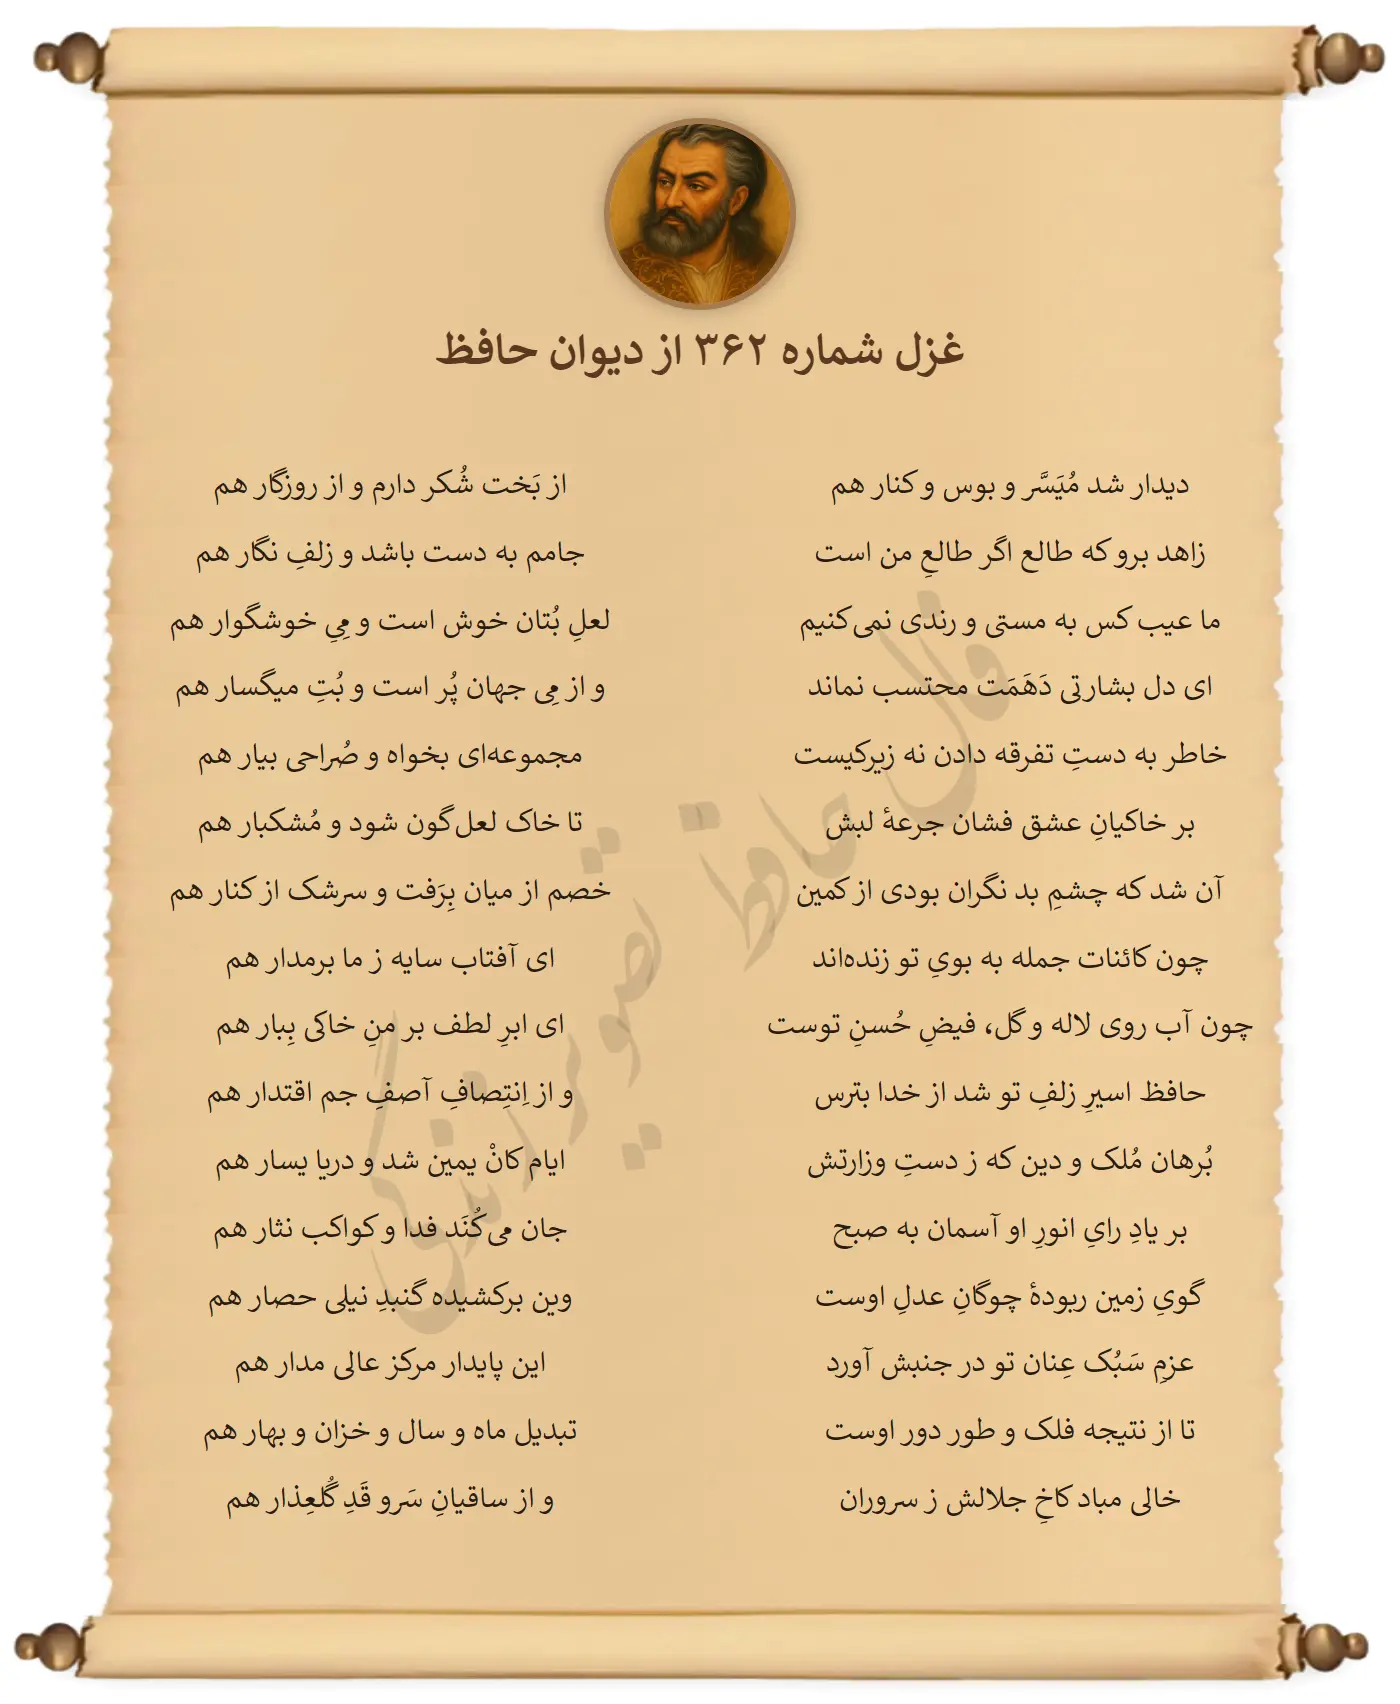 غزل شماره ۳۶۲ از دیوان حافظ
دیدار شد مُیَسَّر و بوس و کنار هم
از بَخت شُکر دارم و از روزگار هم
زاهد برو که طالع اگر طالعِ من است
جامم به دست باشد و زلفِ نگار هم
ما عیب کس به مستی و رندی نمی‌کنیم
لعلِ بُتان خوش است و مِیِ خوشگوار هم
ای دل بشارتی دَهَمَت محتسب نماند
و از مِی جهان پُر است و بُتِ میگسار هم
خاطر به دستِ تفرقه دادن نه زیرکیست
مجموعه‌ای بخواه و صُراحی بیار هم
بر خاکیانِ عشق فشان جرعهٔ لبش
تا خاک لعل‌گون شود و مُشکبار هم
آن شد که چشمِ بد نگران بودی از کمین
خصم از میان بِرَفت و سرشک از کنار هم
چون کائنات جمله به بویِ تو زنده‌اند
ای آفتاب سایه ز ما برمدار هم
چون آب روی لاله و گل، فیضِ حُسنِ توست
ای ابرِ لطف بر منِ خاکی بِبار هم
حافظ اسیرِ زلفِ تو شد از خدا بترس
و از اِنتِصافِ آصفِ جم اقتدار هم
بُرهان مُلک و دین که ز دستِ وزارتش
ایام کانْ یمین شد و دریا یسار هم
بر یادِ رایِ انورِ او آسمان به صبح
جان می‌کُنَد فدا و کواکب نثار هم
گویِ زمین ربودهٔ چوگانِ عدلِ اوست
وین برکشیده گنبدِ نیلی حصار هم
عزمِ سَبُک عِنان تو در جنبش آورد
این پایدار مرکز عالی مدار هم
تا از نتیجه فلک و طور دور اوست
تبدیل ماه و سال و خزان و بهار هم
خالی مباد کاخِ جلالش ز سروران
و از ساقیانِ سَرو قَدِ گُلعِذار هم
فال حافظ تصویر زندگی